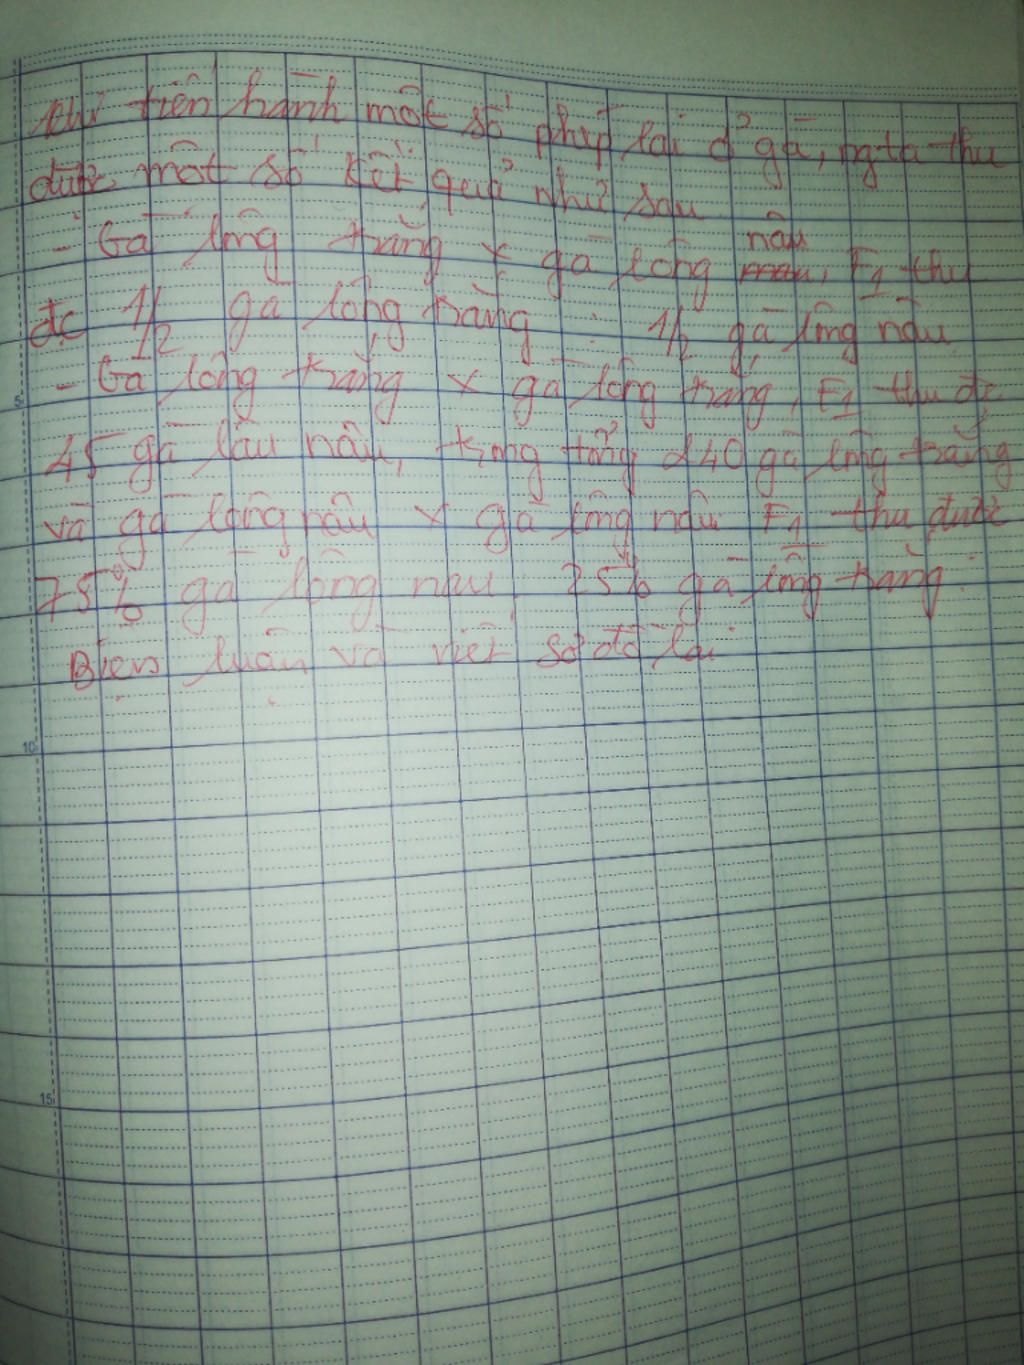 khi tiến hành một số phép lai ở gà, ngta thu
được một số kết quả như sau
- Gà lông trắng x gà lông nâu, F1 thu
đc 1/2 gà lông trắng : 1/2 gà lông nâu
- Gà lông trắng x gà lông trắng, F1 thu đc
5
45 gà lâu nâu, trong tổng 240 gà lông trắng
và gà lông nâu x gà lông nâu F1 thu được
75% gà lông nâu : 25% gà lông trắng.
Biện luận và viết sơ đồ lai
10
15